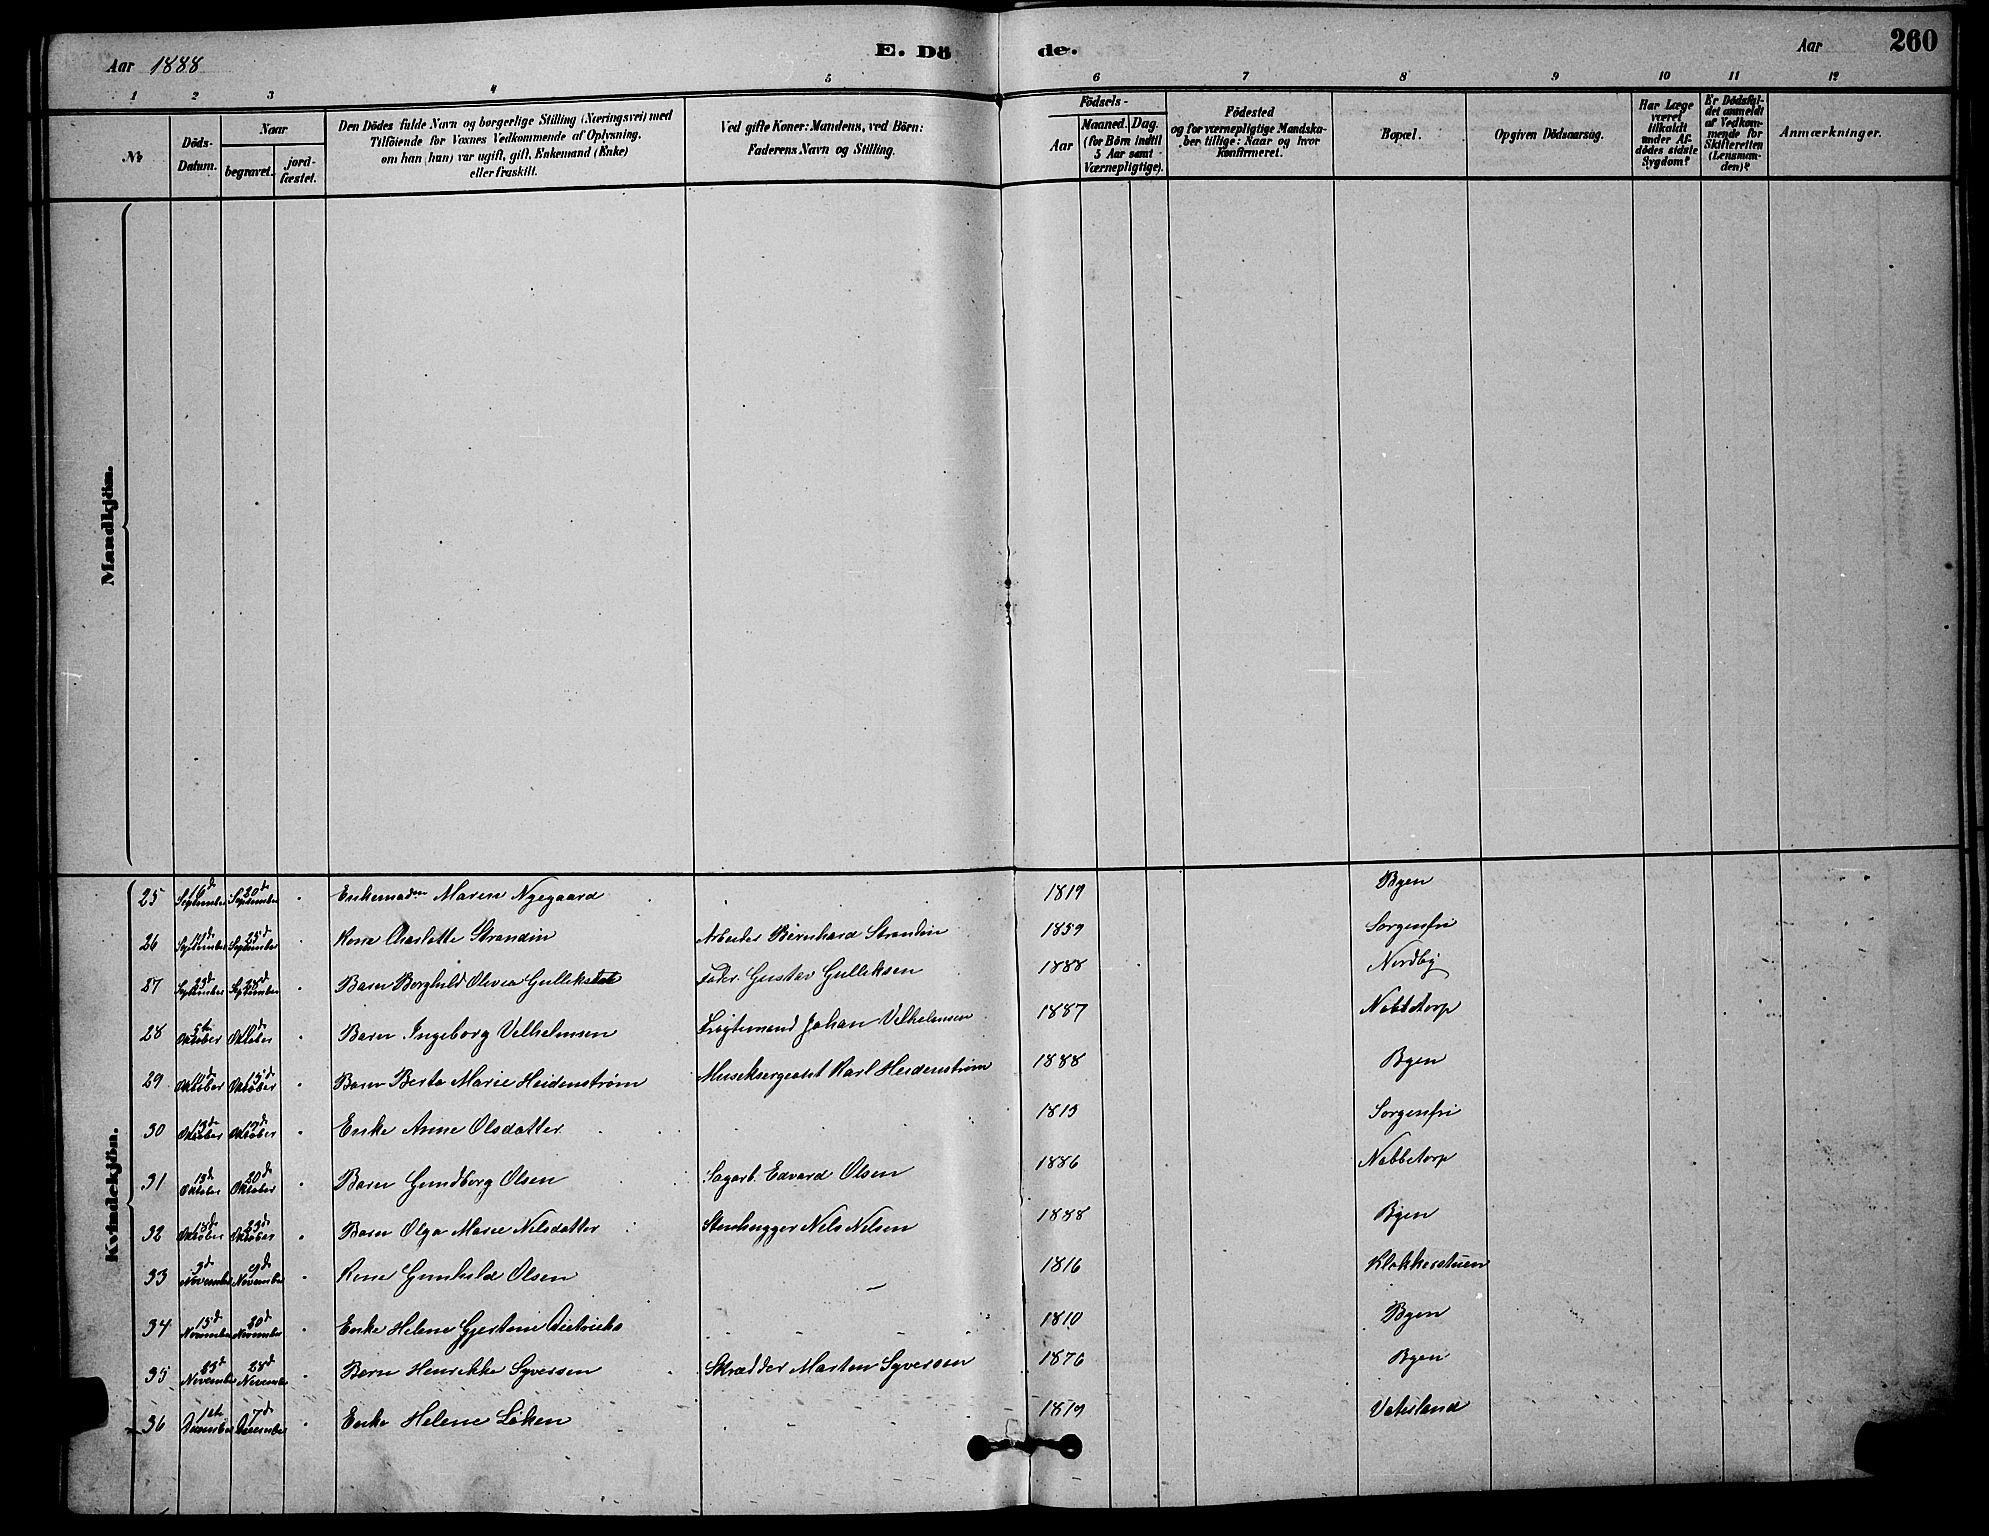 Aar 1888
E. Dö de.
Aar
260
1 2 3 4 5 6 7 8 9 10 11 12
№
Döds-Datum.
Naar
begravet.
jord-fæstet.
Den Dödes fulde Navn og borgerlige Stilling (Næringsvei) med
Tilföiende for Voxnes Vedkommende af Oplysning,
om han (hun) var ugift, gift, Enkemand (Enke)
eller fraskilt.
Ved gifte Koner: Mandens, ved Börn:
Faderens Navn og Stilling.
Födsels-
Aar
Maaned. Dag.
(for Börn indtil
5 Aar samt
Værnepligtige).
Födested
og for værnepligtige Mandska-
ber tillige: Naar og hvor
Konfirmeret.
Bopæl.
Opgiven Dödsaarsag.
Har Læge
været
tilkaldt
under Af-
dödes sidste
Sygdom?
Er Dödsfal-
det anmeldt
af Vedkom-
mende for
Skifteretten
(Lensman-
den)?
Anmærkninger.
Mandkjön.
Kvindekjön.
25 16de September 20de September Enkemadm Maren Nygaard 1819 Byen
26 September 25de September Kone Charlotte Strandin Arbeider Bernhard Strandin 1859 Sorgenfri
27 23de September 28de September Barn Borghild Olivia Gulliksdat Fader Gustav Gulliksen 1888 Nordby
28 5te Oktober Oktober Barn Ingeborg Vilhelmsen Johan Vilhelmsen 1887 Nabbetorp
29 Oktober 15de Oktober Barn Berta Marie Heidenstrøm Musiksergeant Karl Heidenstrøm 1888 Byen
30 13de Oktober 19de Oktober Enke Anne Olsdatter 1815 Sorgenfri
31 15de Oktober 20de Oktober Barn Gundborg Olsen Sagarb. Edvard Olsen 1886 Nabbetorp
32 18de Oktober 23de Oktober Barn Olga Marie Nilsdatter Stenhugger Nils Nilsen 1888 Byen
33 3de November 9de November Kone Gunhild Olsen — 1816 Klokkerstuen
34 15de November 20de November Enke Helene Gjertine Dietrichs 1810 Byen
35 23de November 28de November Barn Henrikke Syversen Skrædder Martin Syversen 1876 Byen
36 1ste December 7de December Enke Helene Løken 1819